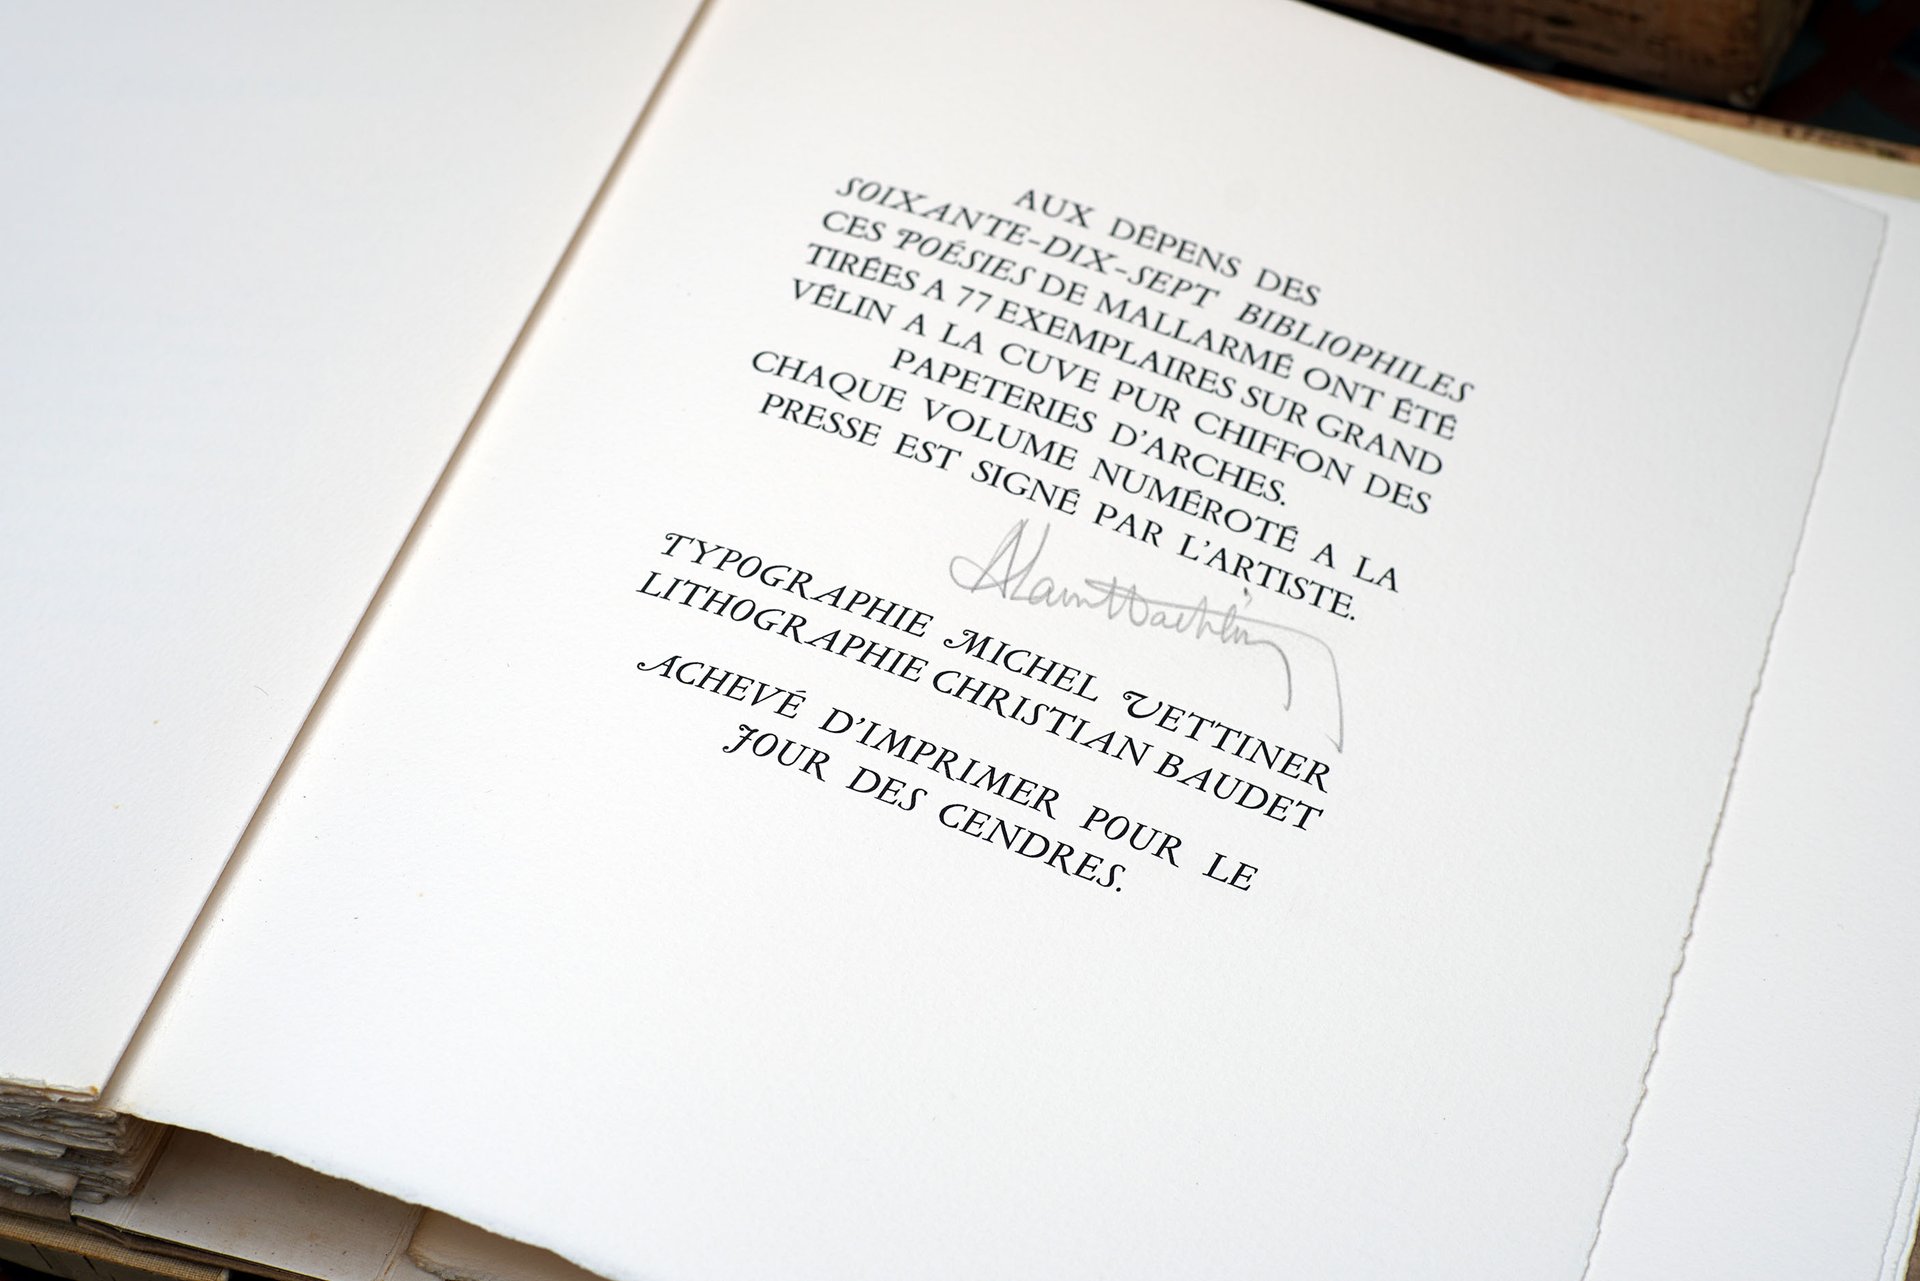 AUX DÉPENS DES
SOIXANTE-DIX-SEPT BIBLIOPHILES
CES POÉSIES DE MALLARMÉ ONT ÉTÉ
TIRÉES A 77 EXEMPLAIRES SUR GRAND
VÉLIN A LA CUVE PUR CHIFFON DES
PAPETERIES D'ARCHES.
CHAQUE VOLUME NUMÉROTÉ A LA
PRESSE EST SIGNÉ PAR L'ARTISTE.
Alain
TYPOGRAPHIE MICHEL VETTINER
LITHOGRAPHIE CHRISTIAN BAUDET
ACHEVÉ D'IMPRIMER POUR LE
JOUR DES CENDRES.